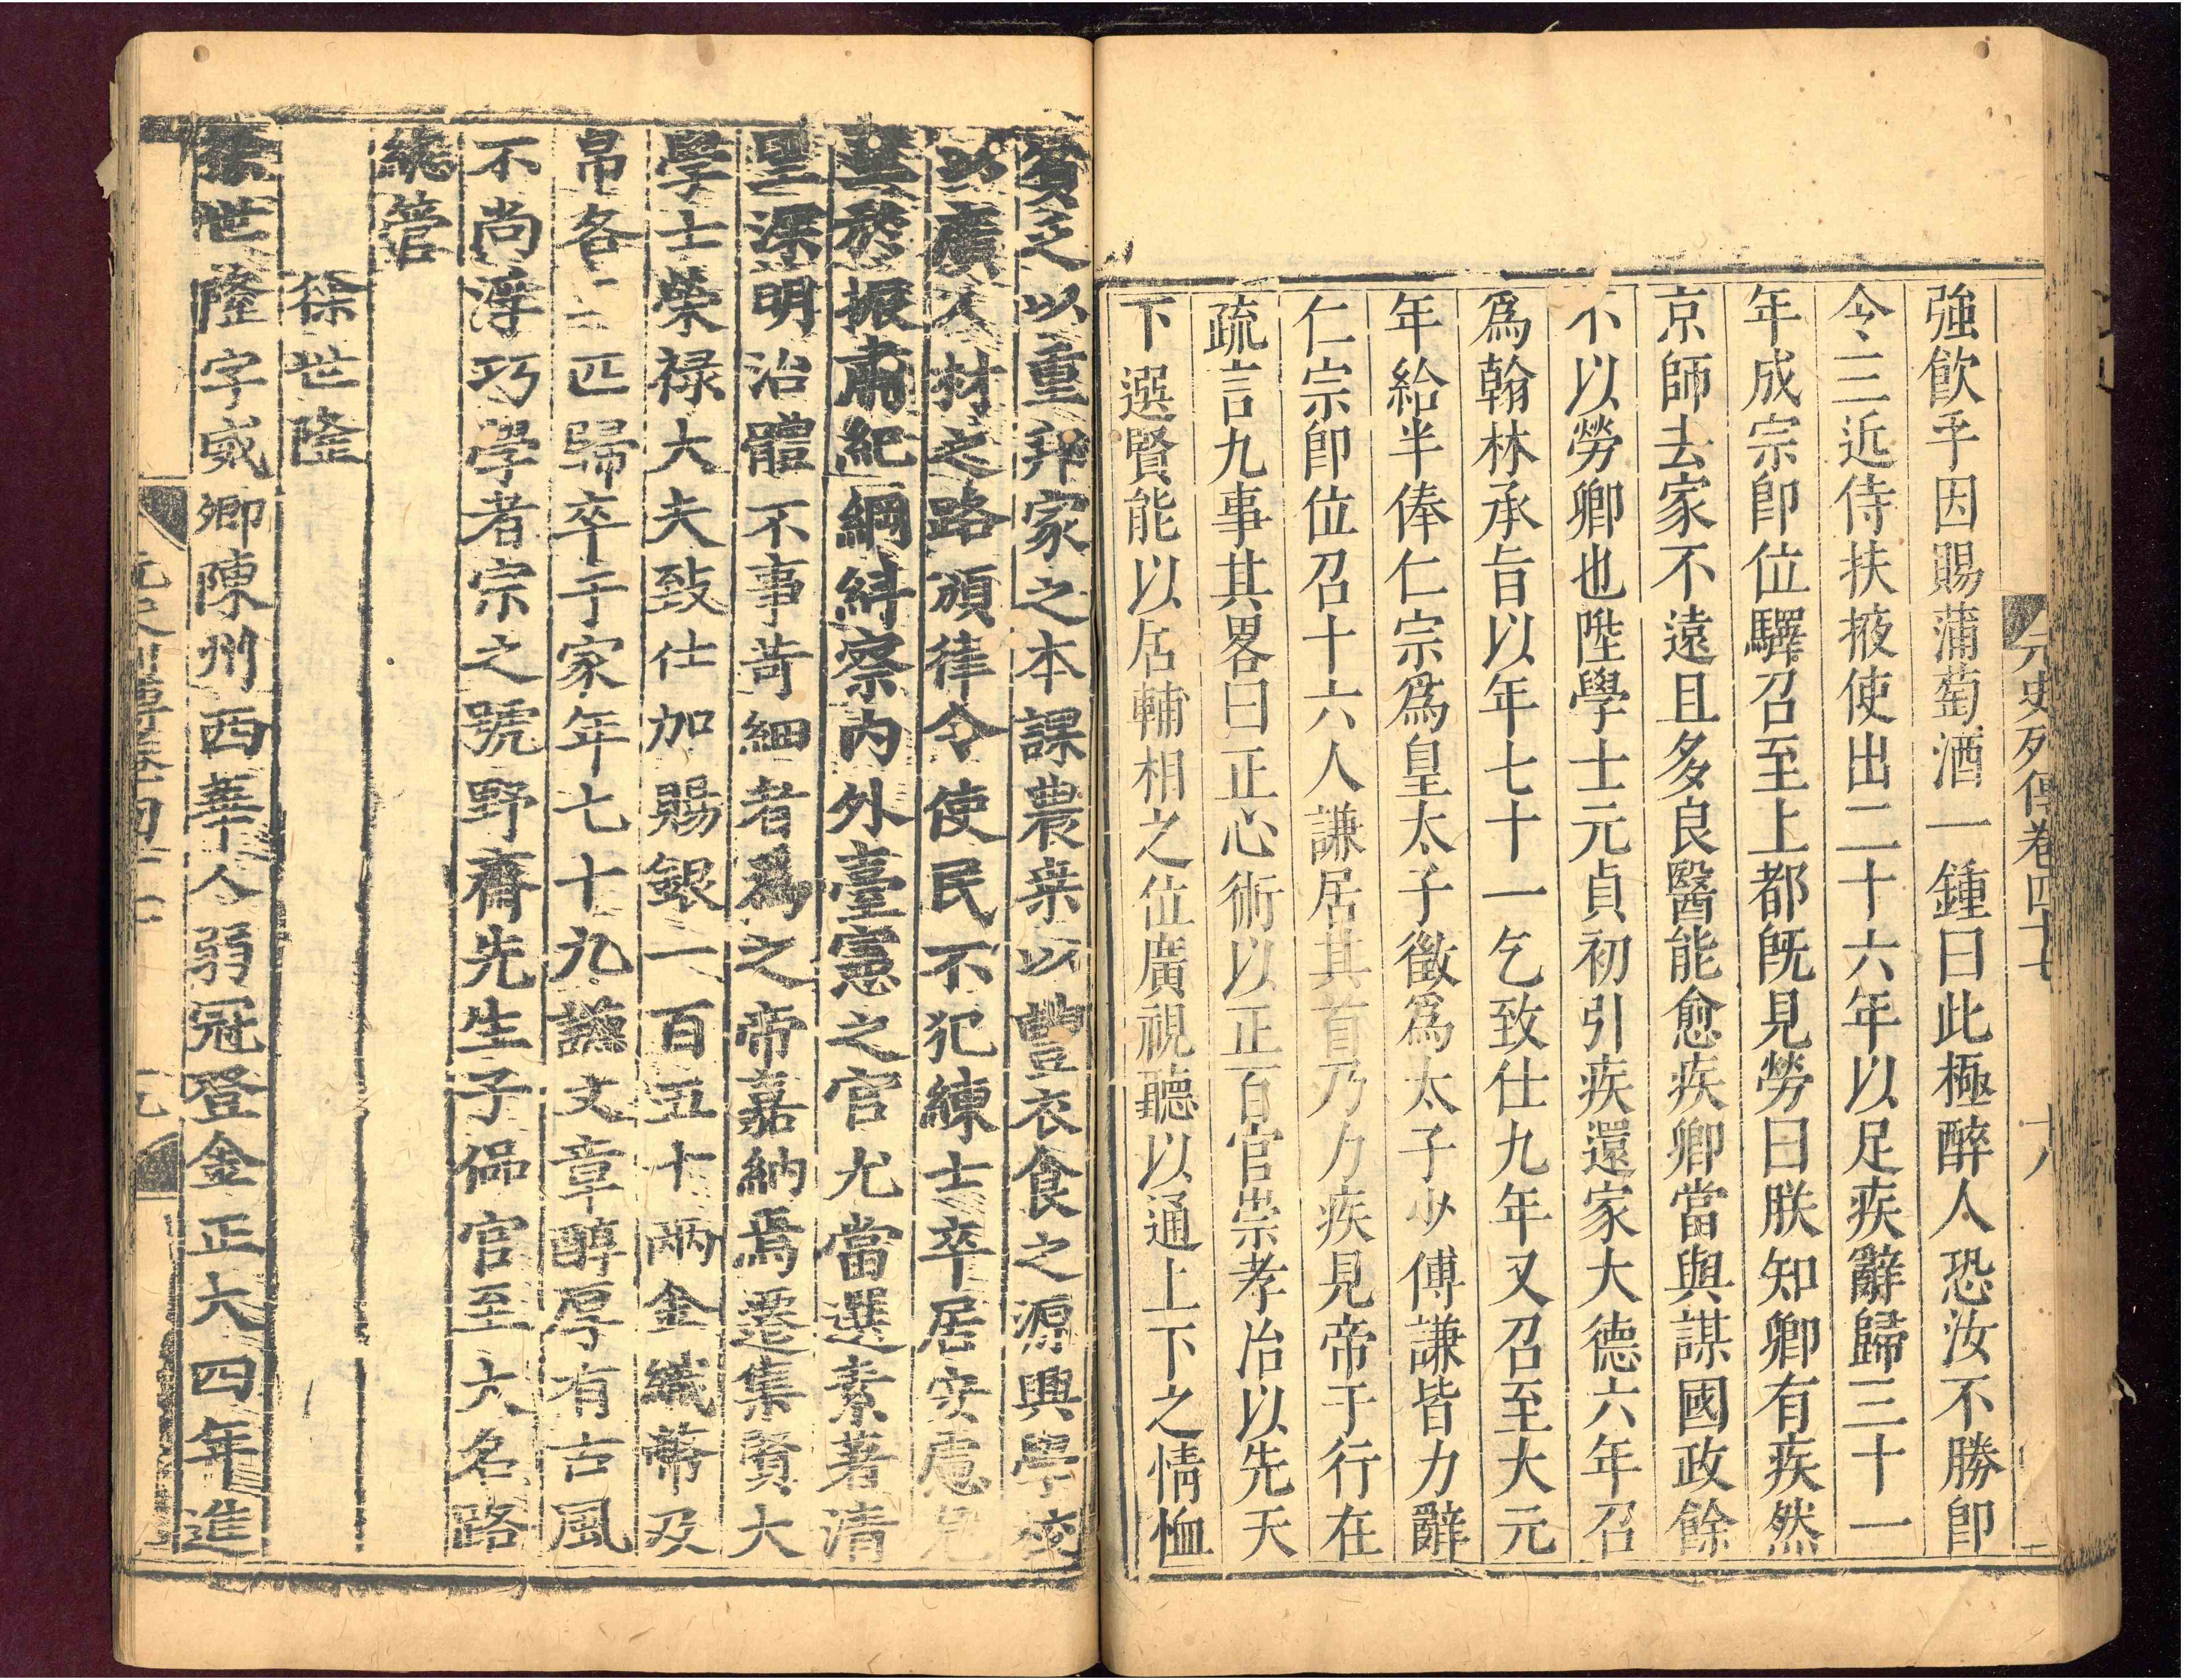 元史列傳卷四十七 十八
強飲乎因賜蒲萄酒一鍾曰此極醉人恐汝不勝卽
令三近侍扶掖使出二十六年以足疾辭歸三十一
年成宗卽位驛召至上都旣見勞曰朕知卿有疾然
京師去家不遠且多良醫能愈疾卿當與謀國政餘
不以勞卿也陞學士元貞初引疾還家大德六年召
爲翰林承旨以年七十一乞致仕九年又召至大元
年給半俸仁宗爲皇太子徵爲太子少傅謙皆力辭
仁宗卽位召十六人謙居其首乃力疾見帝于行在
疏言九事其畧曰正心術以正百官崇孝治以先天
下選賢能以居輔相之位廣視聽以通上下之情恤
貧乏以重邦家之本課農桒以豐衣食之源興學校
以廣人材之路頒律令使民不犯練士卒居安慮危
至於振肅紀綱紏察內外臺憲之官尤當選素著清
望深明治體不事苛細者爲之帝嘉納焉遷集賢大
學士榮祿大夫致仕加賜銀一百五十兩金織幣及
帛各二匹歸卒于家年七十九謙文章醇厚有古風
不尚浮巧學者宗之號野齋先生子偘官至大名路
總管
徐世隆
徐世隆字威卿陳州西華人弱冠登金正大四年進
元史列傳卷四十七 十九